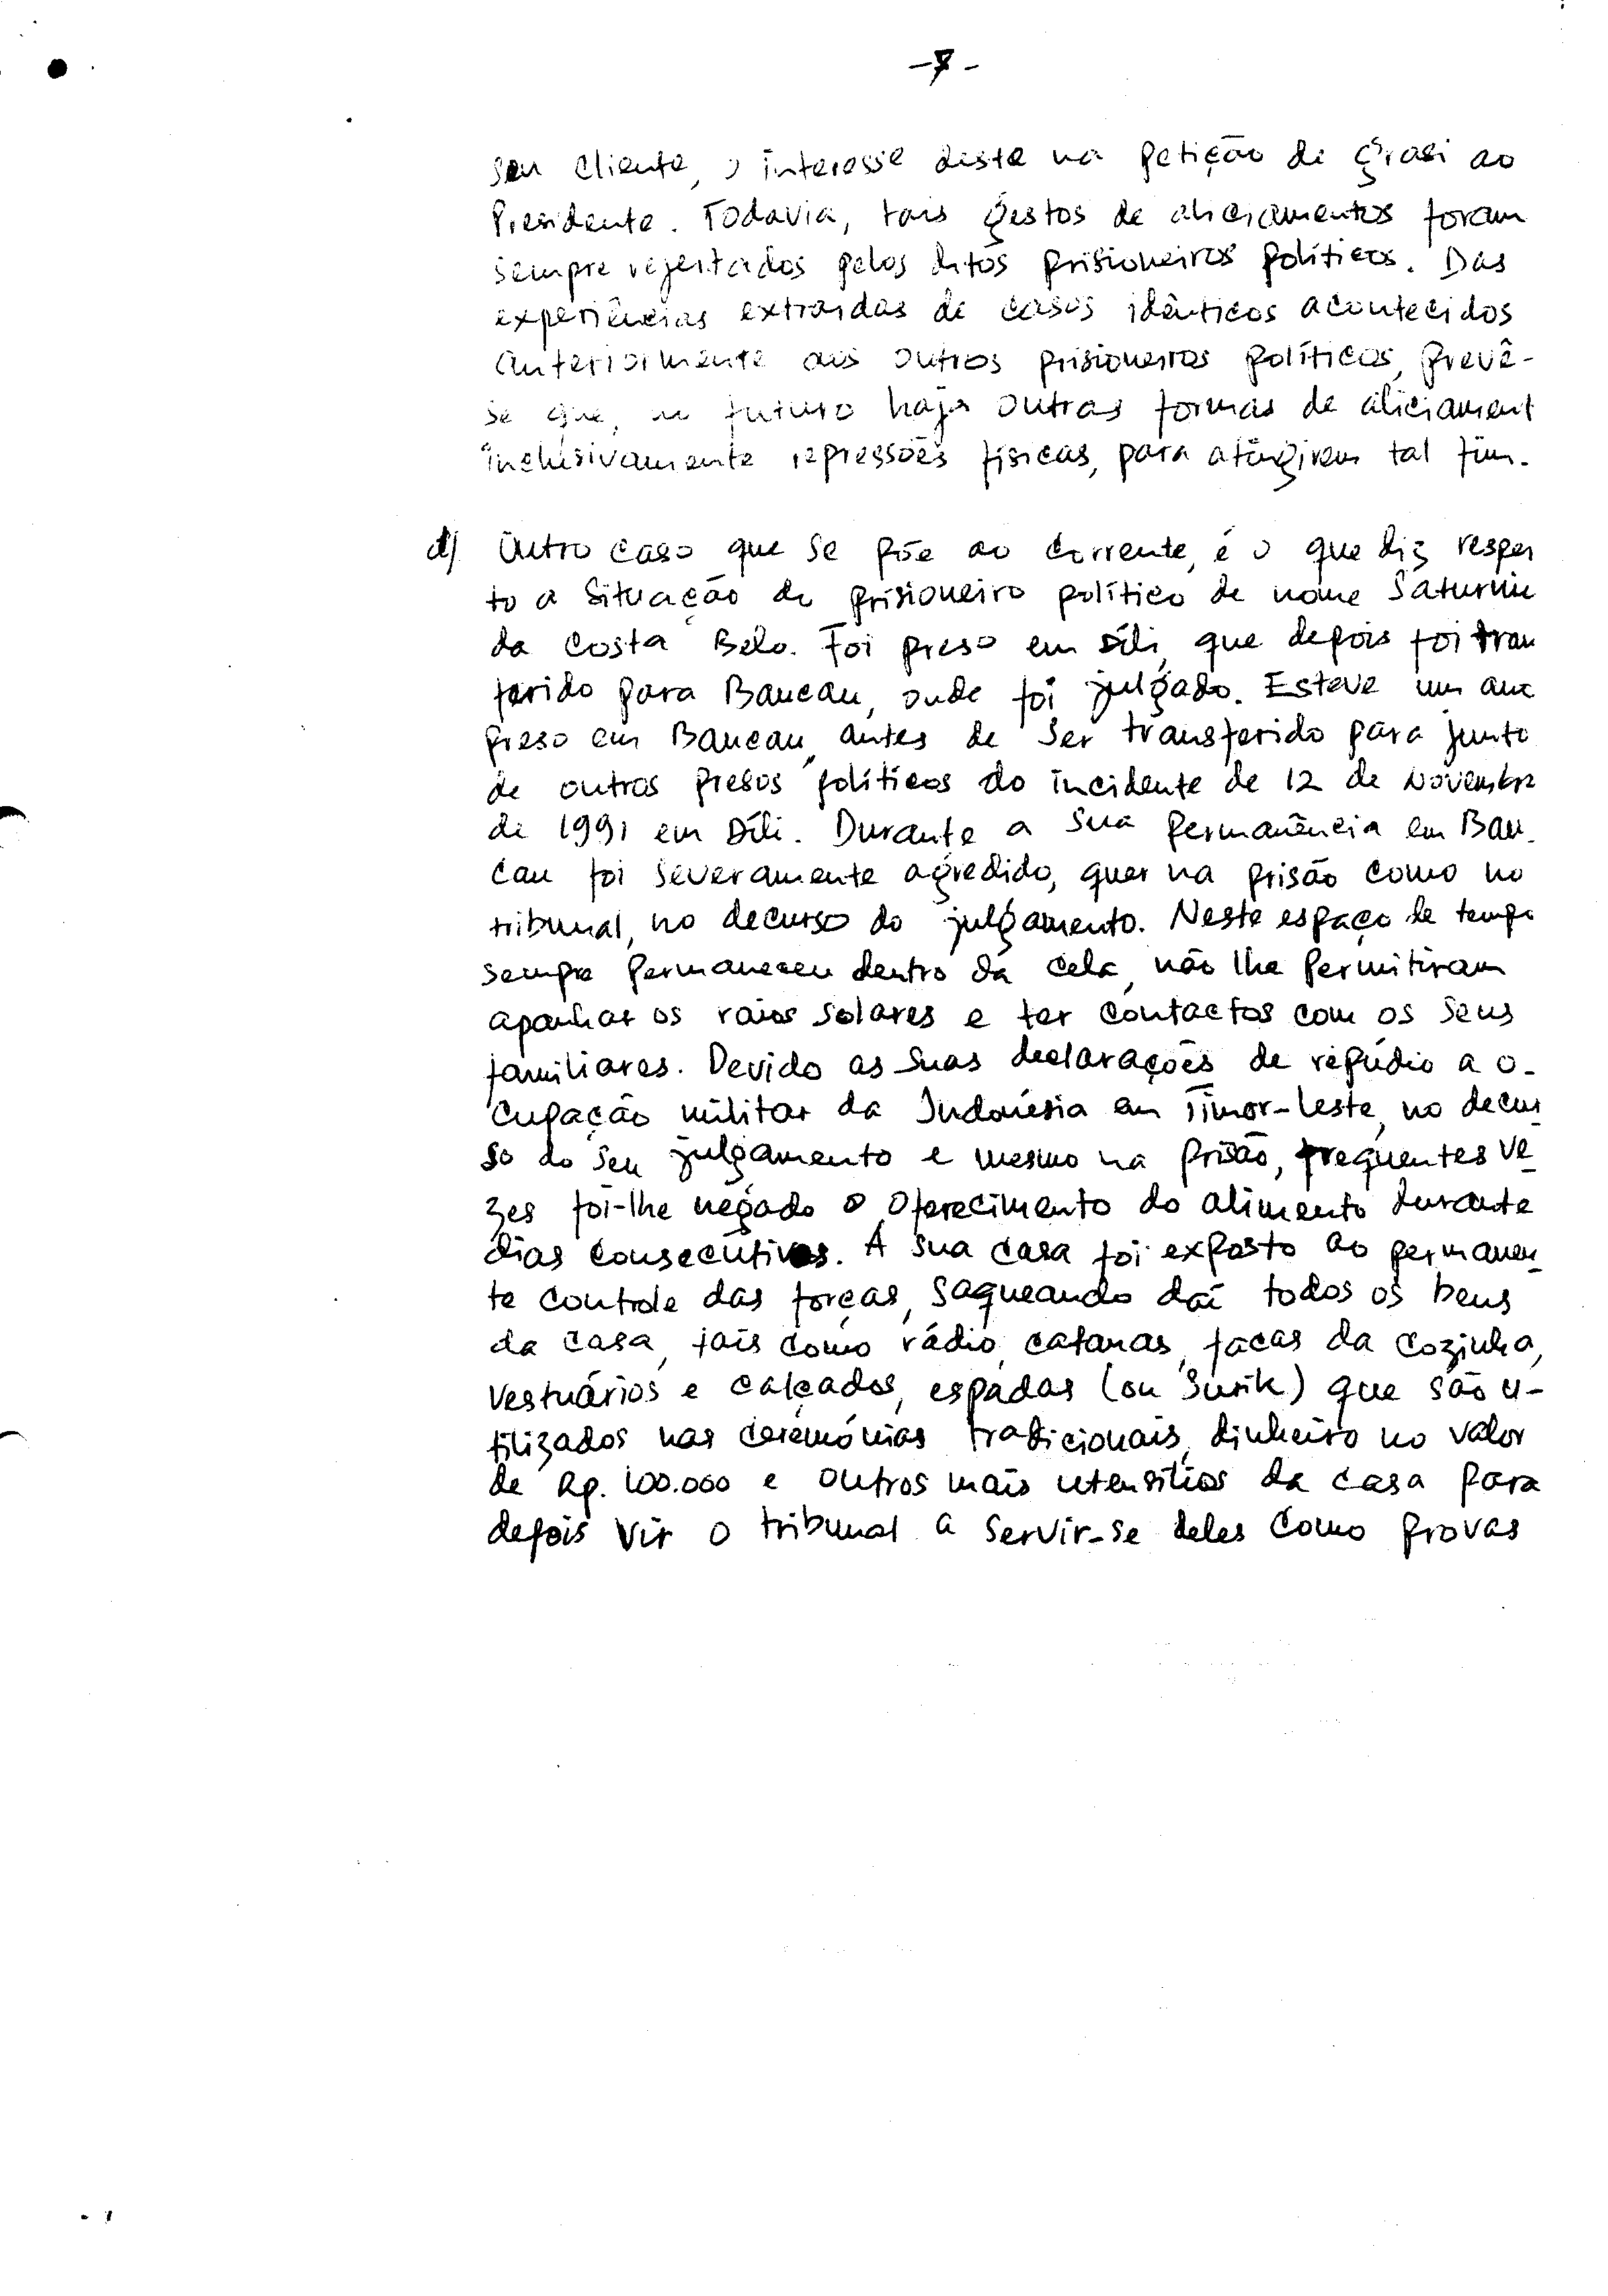 -7-
seu cliente, o interesse deste na petição de grasi ao
Presidente. Todavia, tais gestos de aliciamentos foram
sempre rejeitados pelos ditos prisioneiros políticos. Das
experiências extraídas de casos idênticos acontecidos
anteriormente aos outros prisioneiros políticos, prevê-
se que, no futuro haja outras formas de aliciament
inclusivamente repressões físicas, para atingirem tal fim.
d) Outro caso que se põe ao corrente, é o que diz respei
to a situação do prisioneiro político de nome Saturnin
da Costa Belo. Foi preso em Díli, que depois foi tran
ferido para Baucau, onde foi julgado. Esteve um ano
preso em Baucau, antes de ser transferido para junto
de outros presos políticos do incidente de 12 de Novembro
de 1991 em Díli. Durante a sua permanência em Bau-
cau foi severamente agredido, quer na prisão como no
tribunal, no decurso do julgamento. Neste espaço de tempo
sempre permaneceu dentro da cela, não lhe permitiram
apanhar os raios solares e ter contactos com os seus
familiares. Devido as suas declarações de repúdio a o-
cupação militar da Indonésia em Timor-Leste, no decur
so do seu julgamento e mesmo na prisão, frequentes ve
zes foi-lhe negado o oferecimento do alimento durante
dias consecutivos. A sua casa foi exposto ao permanen
te controle das forças, saqueando daí todos os bens
da casa, tais como rádio, catanas, facas da cozinha,
vestuários e calçados, espadas (ou Surik) que são u-
tilizados nas ceremónias tradicionais, dinheiro no valor
de Rp. 100.000 e outros mais utensílios da casa para
depois vir o tribunal a servir-se deles como provas